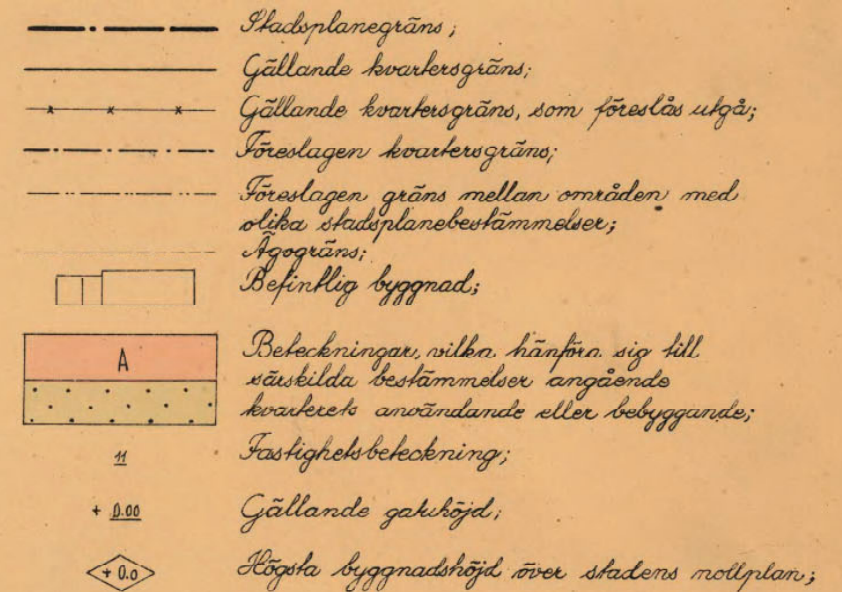 Stadsplanegräns;
Gällande kvartersgräns;
Gällande kvartersgräns, som föreslås utgå;
Föreslagen kvartersgräns;
Föreslagen gräns mellan områden med
olika stadsplanebestämmelser;
Ägogräns;
Befintlig byggnad;
A
Beteckningar, vilka hänföra sig till
särskilda bestämmelser angående
kvarterets användande eller bebyggande;
11 Fastighetsbeteckning;
+ 0.00 Gällande gatuhöjd;
+ 0.0 Högsta byggnadshöjd över stadens nollplan;